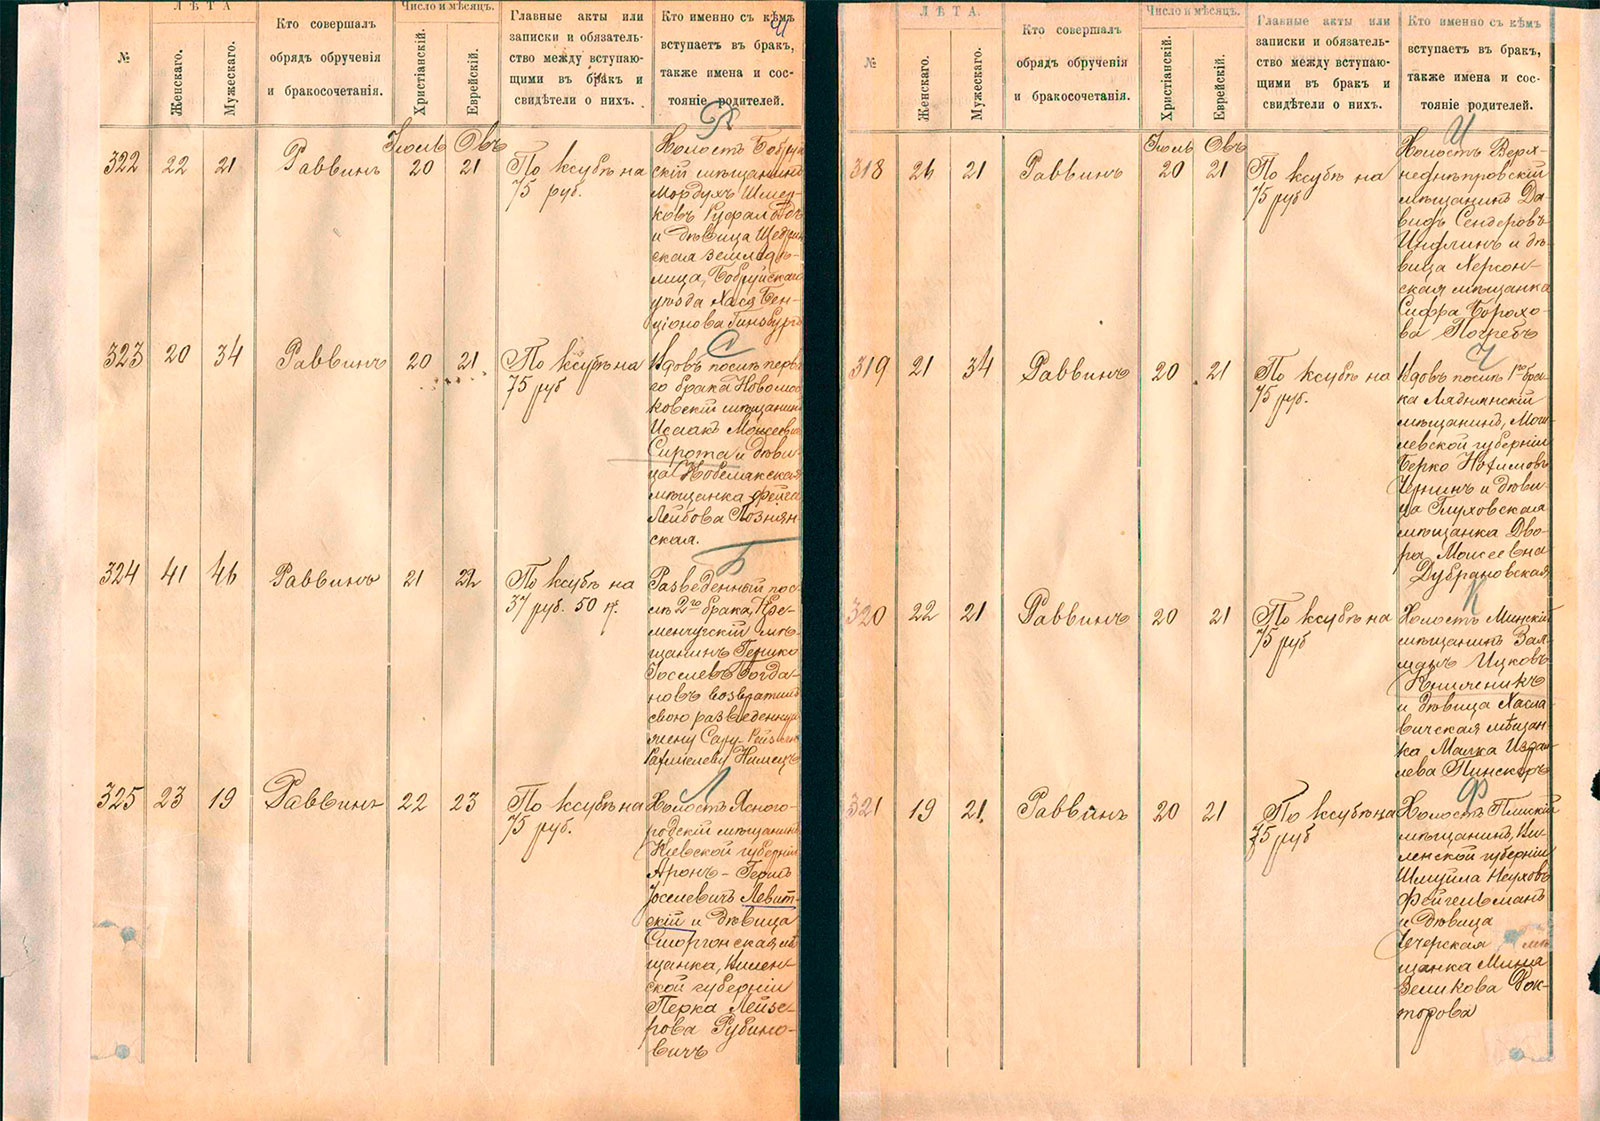 №
ЛѢТА
Женскаго.
Мужескаго.
Кто совершалъ
обрядъ обрученія
и бракосочетанія.
Число и мѣсяцъ.
Христіанскій.
Еврейскій.
Главные акты или
записки и обязатель-
ство между вступаю-
щими въ бракъ и
свидѣтели о нихъ.
Кто именно съ кѣмъ
вступаетъ въ бракъ,
также имена и сос-
тояніе родителей.
Р
Іюль Овъ
322 22 21 Раввинъ 20 21 По ксубѣ на
75 руб.
Холостъ Бобруй
скій мѣщанинъ
Мордухъ Шмер-
и дѣвица Щедрин
ская земледѣ-
лица, Бобруйскаго
уѣзда Хася Бен-
ціонова Гинзбургъ
С
323 20 34 Раввинъ 20 21 По ксубѣ на
75 руб
Вдовъ послѣ перва
го брака Новомос
ковскій мѣщанинъ
Исаакъ Моисеевъ
Сирота и дѣви-
ца
мѣщанка Фейга
Лейбова Познян-
ская.
Б
324 41 46 Раввинъ 21 22 По ксубѣ на
37 руб. 50 к.
Разведенный пос-
лѣ 2го брака, Кре-
менчугскій мѣ-
щанинъ Герцко
Іоселевъ Богда-
новъ возвратилъ
свою разведенную
жену Сару-Рейзю
Л
325 23 19 Раввинъ 22 23 По ксубѣ на
75 руб.
Холостъ Ясного-
родскій мѣщанинъ
Кіевской губерніи
Аронъ-Гершъ
Іоселевичъ Левит-
скій и дѣвица
Сморгонская мѣ
щанка, Вилен
ской губерніи
Перка Лейзе-
рова Рубино-
вичъ
№
ЛѢТА.
Женскаго.
Мужескаго.
Кто совершалъ
обрядъ обрученія
и бракосочетанія.
Число и мѣсяцъ.
Христіанскій.
Еврейскій.
Главные акты или
записки и обязатель-
ство между вступаю-
щими въ бракъ и
свидѣтели о нихъ.
Кто именно съ кѣмъ
вступаетъ въ бракъ,
также имена и сос-
тояніе родителей.
И
Іюль Овъ
318 26 21 Раввинъ 20 21 По ксубѣ на
75 руб
Холостъ Верх-
неднѣпровскій
мѣщанинъ Да-
видъ Сендеровъ
Ицлинъ и дѣ-
вица Херсон-
ская мѣщанка
Сифра Борохо-
ва Погребъ
Ч
319 21 34 Раввинъ 20 21 По ксубѣ на
75 руб.
Вдовъ послѣ 1го бра-
ка Ляднянскій
мѣщанинъ, Моги
левской губерніи
Берко Нохимовъ
Чернинъ и дѣви
ца Глуховская
мѣщанка Дво-
ра Моисеевна
Дубрановская
К
320 22 21 Раввинъ 20 21 По ксубѣ на
75 руб
Холостъ Минскій
мѣщанинъ Зал-
манъ Ицковъ
и дѣвица Хасла
вичская мѣщан-
ка, Малка Израи
лева Пинскеръ
Ф
321 19 21. Раввинъ 20 21 По ксубѣ на
75 руб
Холостъ
мѣщанинъ, Ви-
ленской губерніи
Шмуйла Неуховъ
Фейгельманъ
и дѣвица
Чечерская мѣ
щанка Мина
Зеликова Док-
торова